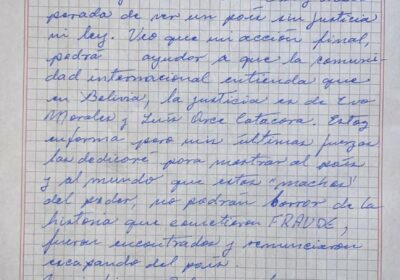 perada de ver un país sin justicia
ni ley. Veo que mi acción final,
podrá ayudar a que la comuni-
dad internacional entienda que
en Bolivia, la justicia es de Evo
Morales y Luis Arce Catacora. Estoy
enferma pero mis últimas fuerzas
las dedicaré para mostrar al país
y al mundo que estos "machos"
del poder, no podrán borrar de la
historia que cometieron FRAUDE,
fueron encontrados y renunciaron
escapando del país